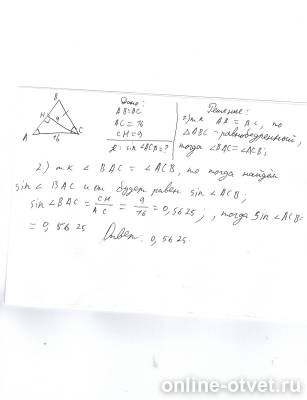 B
H 9
A 16 C
Дано:
AB=BC
AC = 16
CH = 9
sin∠ACB = ?
Решение:
1) т.к. AB = BC, то
△ABC - равнобедренный,
тогда ∠BAC = ∠ACB;
2) т.к ∠ BAC = ∠ACB, то тогда найдём
sin∠ BAC и он будет равен sin∠ACB;
sin∠BAC = CH/AC = 9/16 = 0,5625; , тогда Sin∠ACB=
= 0,5625 Ответ: 0,5625.
online-otvet.ru